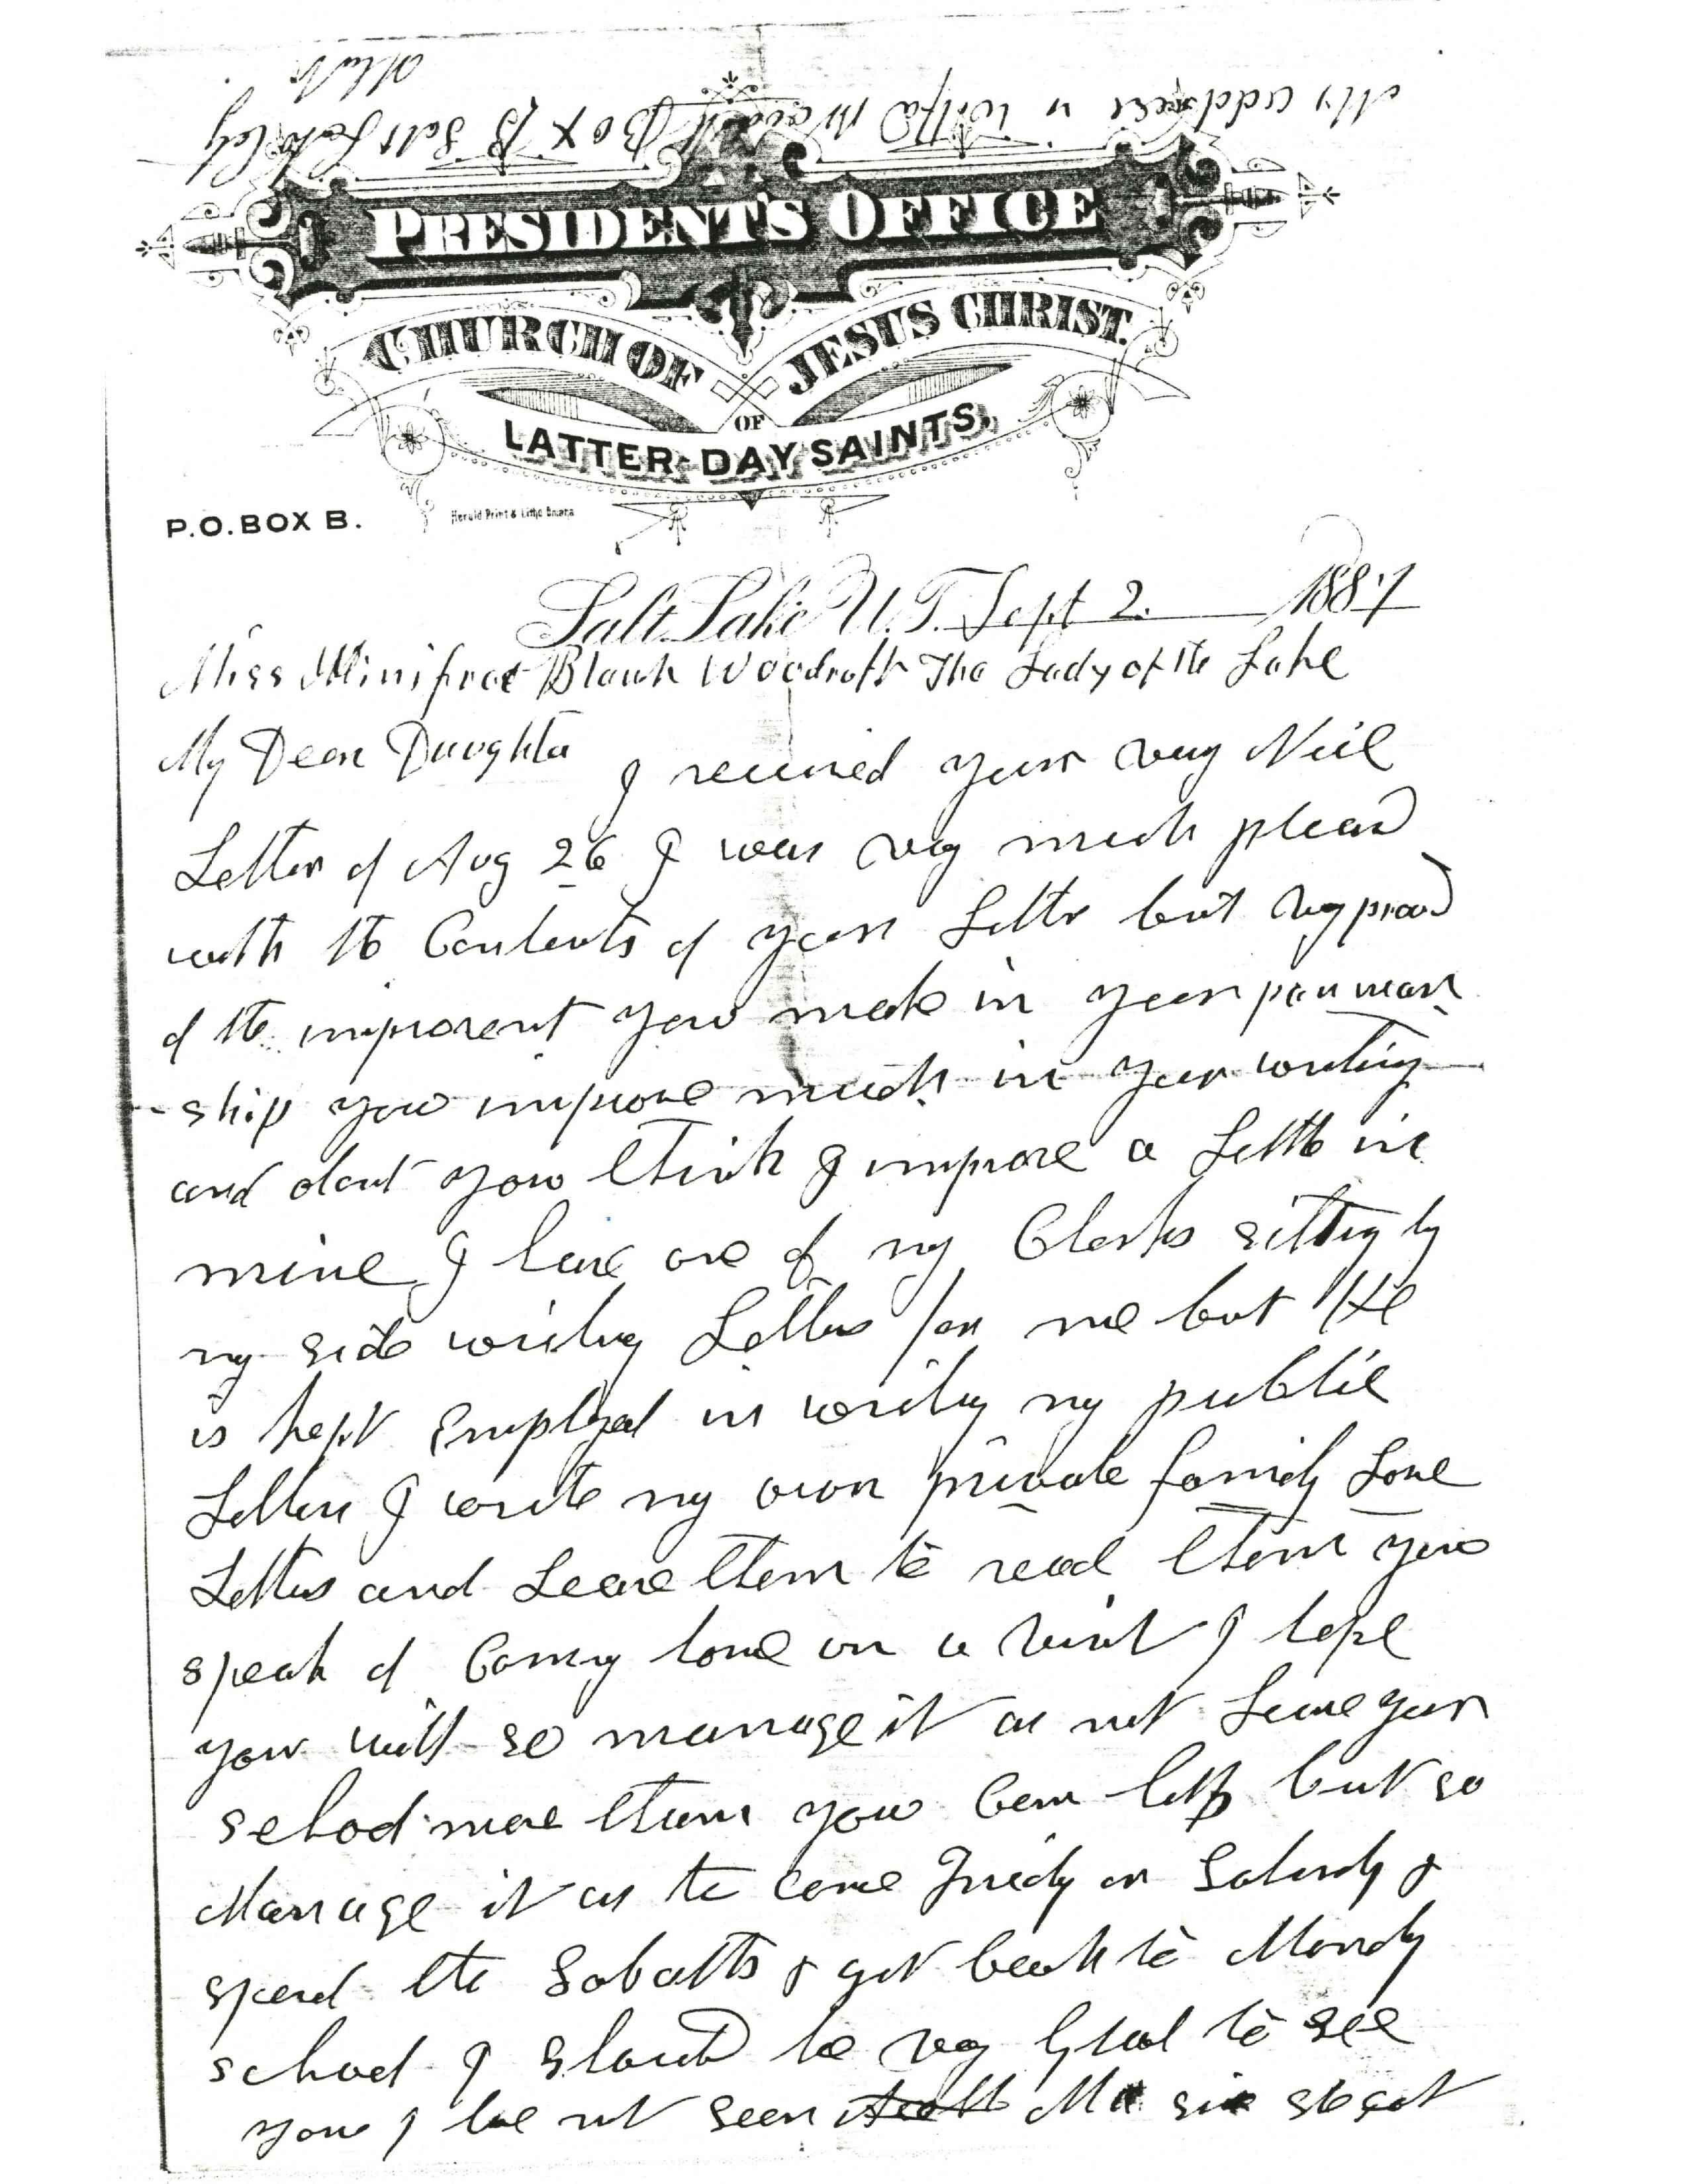 My address is Box B Salt Lake City
PRESIDENT'S OFFICE
CHURCH OF JESUS CHRIST.
OF
LATTER-DAY SAINTS.
P.O. BOX B.
Herald Print & Litho
Salt Lake U.T. Sept 2 1887
Miss Blanch Woodruff The Lady of the Lake
My Dear Daughter I received your very Nice
Letter of Aug 26 I was very much pleasd
with the Contents of your Letter but very proud
of the improvent you make in your penman
ship you improve much in your writing
and dont you think I improve a Little in
mine I have one of my Clerks sitting by
my side writing Letters for me but He
is kept Employed in writing my public
Letters I write my own private family Love
Letters and Leave them to read them you
speak of Coming home on a visit I hope
you will so manage it as not Leave your
school more than you Can help but so
Manage it as to come Friday or Saturdy &
spend the Sabath & get back to Mondy
school I should be very Glad to see
you I have not seen Ma since she got